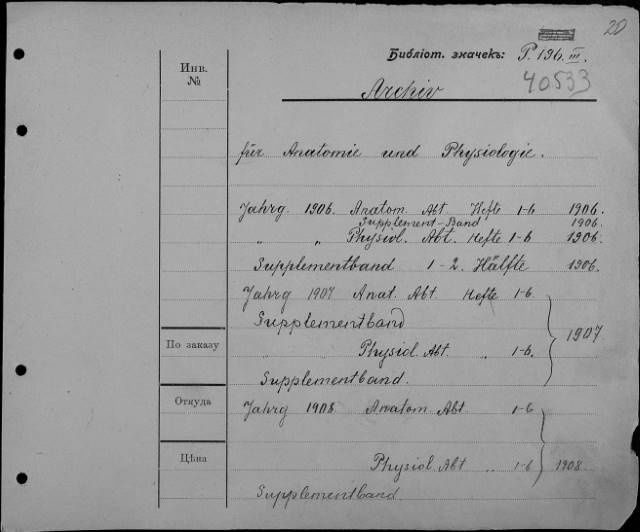 20
Библіот. значекъ: P. 136. III.
40533
Инв.
№
Archiv
für Anatomie und Physiologie.
Jahrg. 1906. Anatom. Abt Hefte 1-6 1906.
Supplement-Band 1906.
„ „ Physiol. Abt. Hefte 1-6 1906.
Supplementband 1-2. Hälfte 1906.
Jahrg 1907 Anat. Abt Hefte 1-6.
Supplementband
1907
По заказу
„ Physiol. Abt. „ 1-6.
Supplementband.
Откуда
Jahrg 1908. Anatom Abt. 1-6
Цѣна
Physiol. Abt „ 1-6 1908.
Supplementband